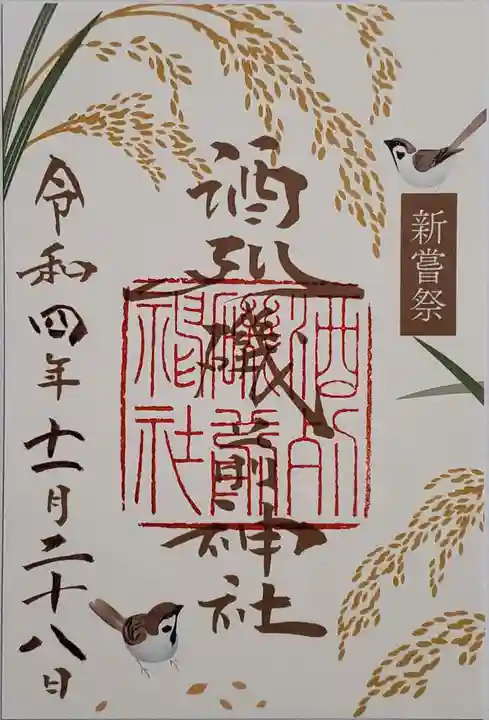 新嘗祭
酒列磯前神社
酒列
磯前
神社
令和四年十一月二十八日